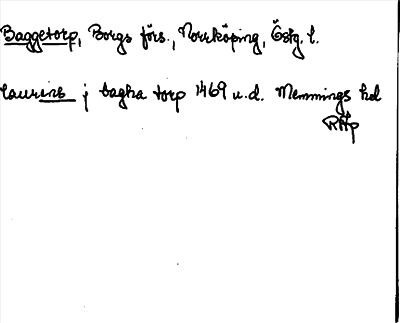 Baggetorp, Borgs förs., Norrköping, Östg. l.
laurins j bagha torp 1469 u.d. Memmings hd
RAp